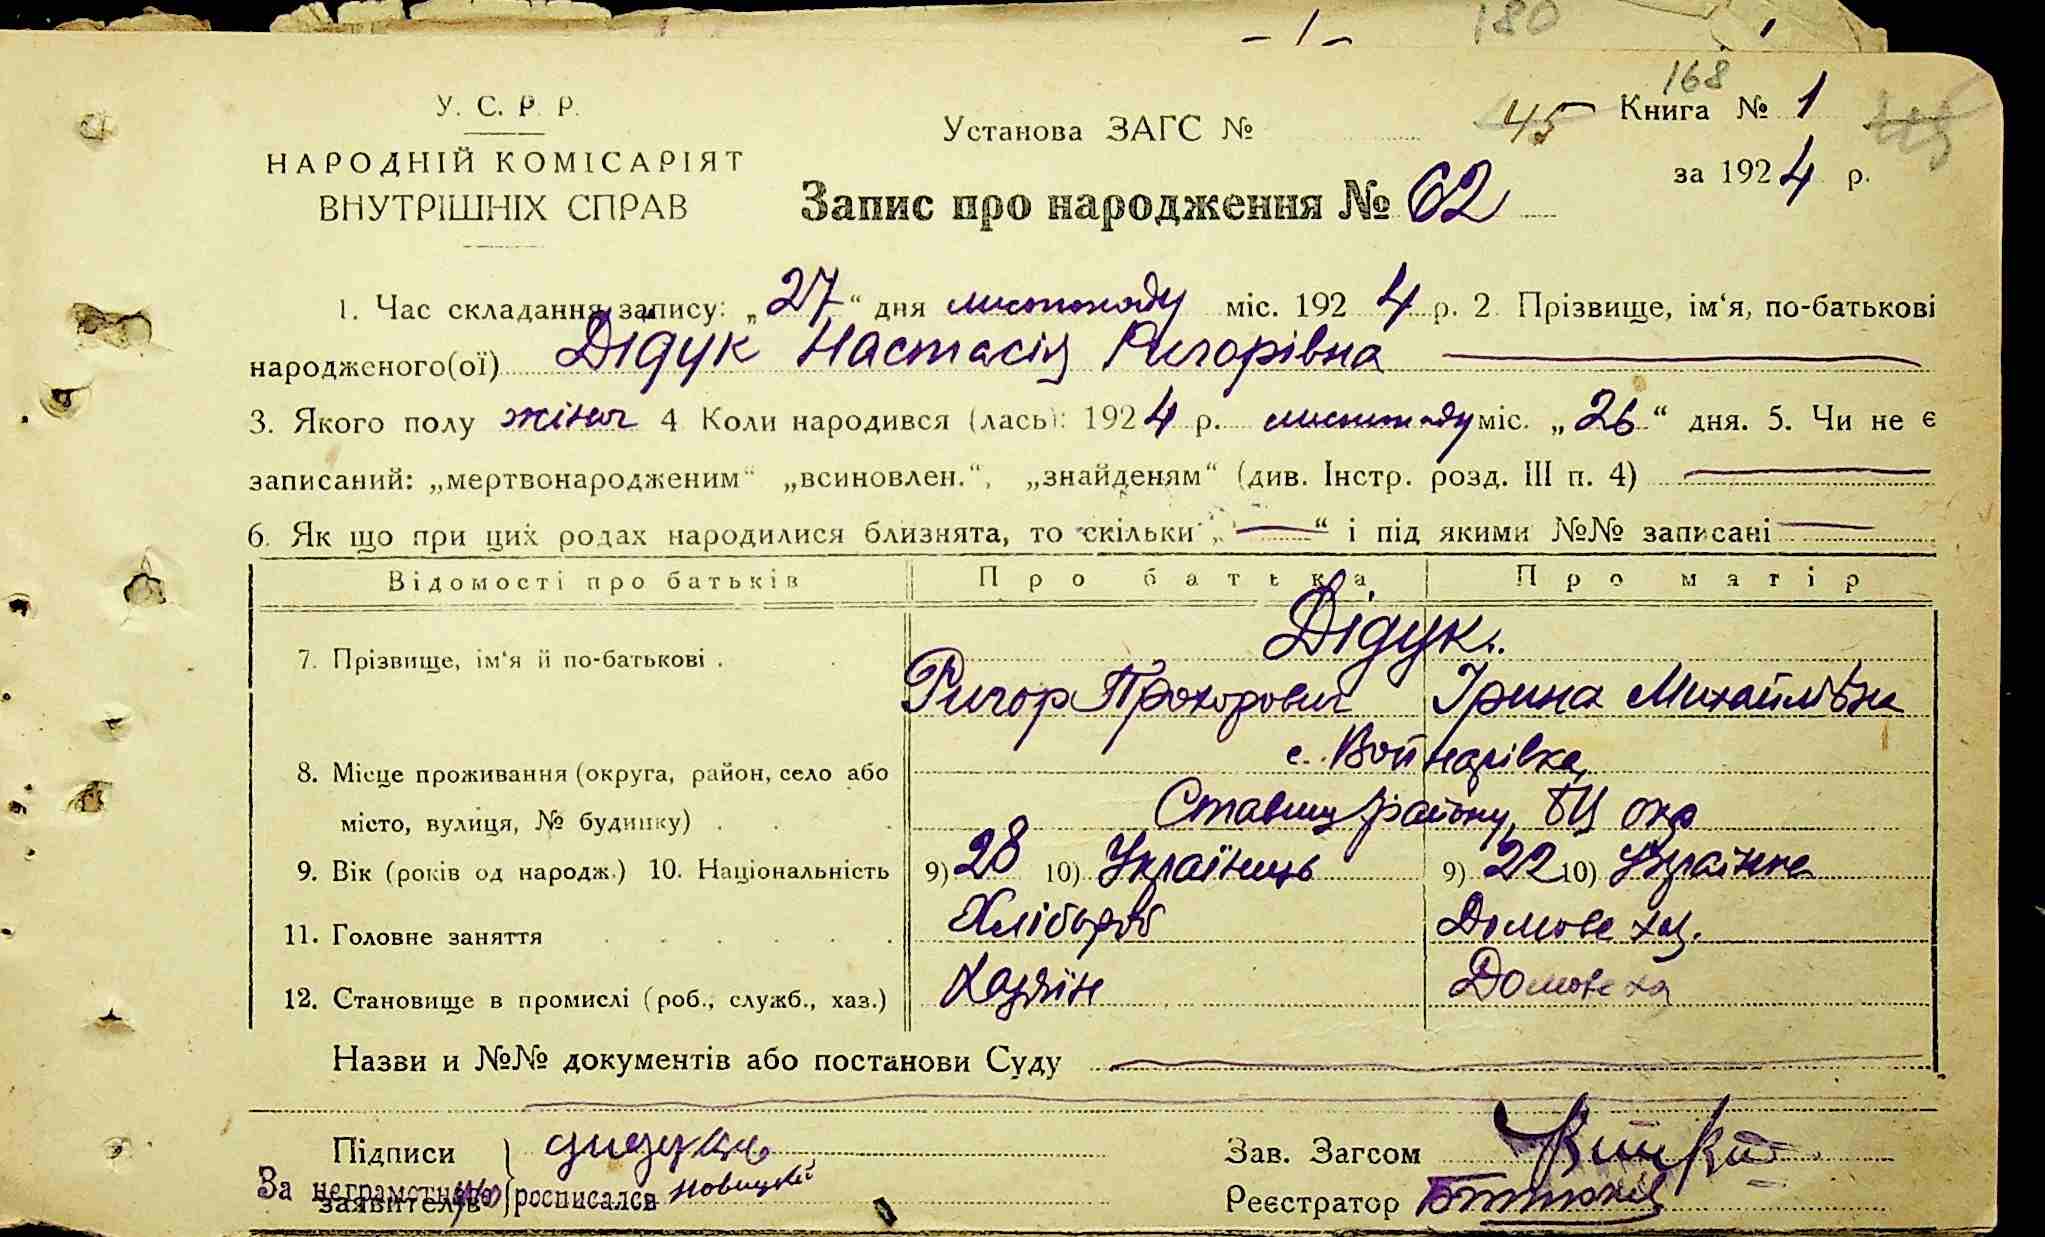 180
168
У. С. Р. Р.
НАРОДНІЙ КОМІСАРІЯТ
ВНУТРІШНІХ СПРАВ
Установа ЗАГС №
45
Книга № 1
за 1924 р.
Запис про народження № 62
1. Час складання запису: „27“ дня листопаду міс. 1924 р. 2. Прізвище, ім‘я, по-батькові
народженого(ої) Дідук Настасія Ригорівна
3. Якого полу жіноч 4 Коли народився (лась): 1924 р. листопаду міс. „26“ дня. 5. Чи не є
записаний: „мертвонародженим“ „всиновлен.“, „знайденям“ (див. Інстр. розд. III п. 4)
6. Як що при цих родах народилися близнята, то скільки „—“ і під якими №№ записані —
Відомості про батьків Про батька Про матір
7. Прізвище, ім‘я й по-батькові . Дідук.
Ригор Прохорович Ірина Михайлівна
8. Місце проживання (округа, район, село або с. Войнарівка,
місто, вулиця, № будинку) . Ставищ району, БЦ окр
9. Вік (років од народж.) 10. Національність 9) 28 10) Українець 9) 22 10) Українка
11. Головне заняття Хлібороб Домове хаз.
12. Становище в промислі (роб., служб., хаз.) Хазяїн Домове ха
Назви и №№ документів або постанови Суду
Підписи
заявителів
За неграмотного росписался Новицкий
Зав. Загсом
Реєстратор